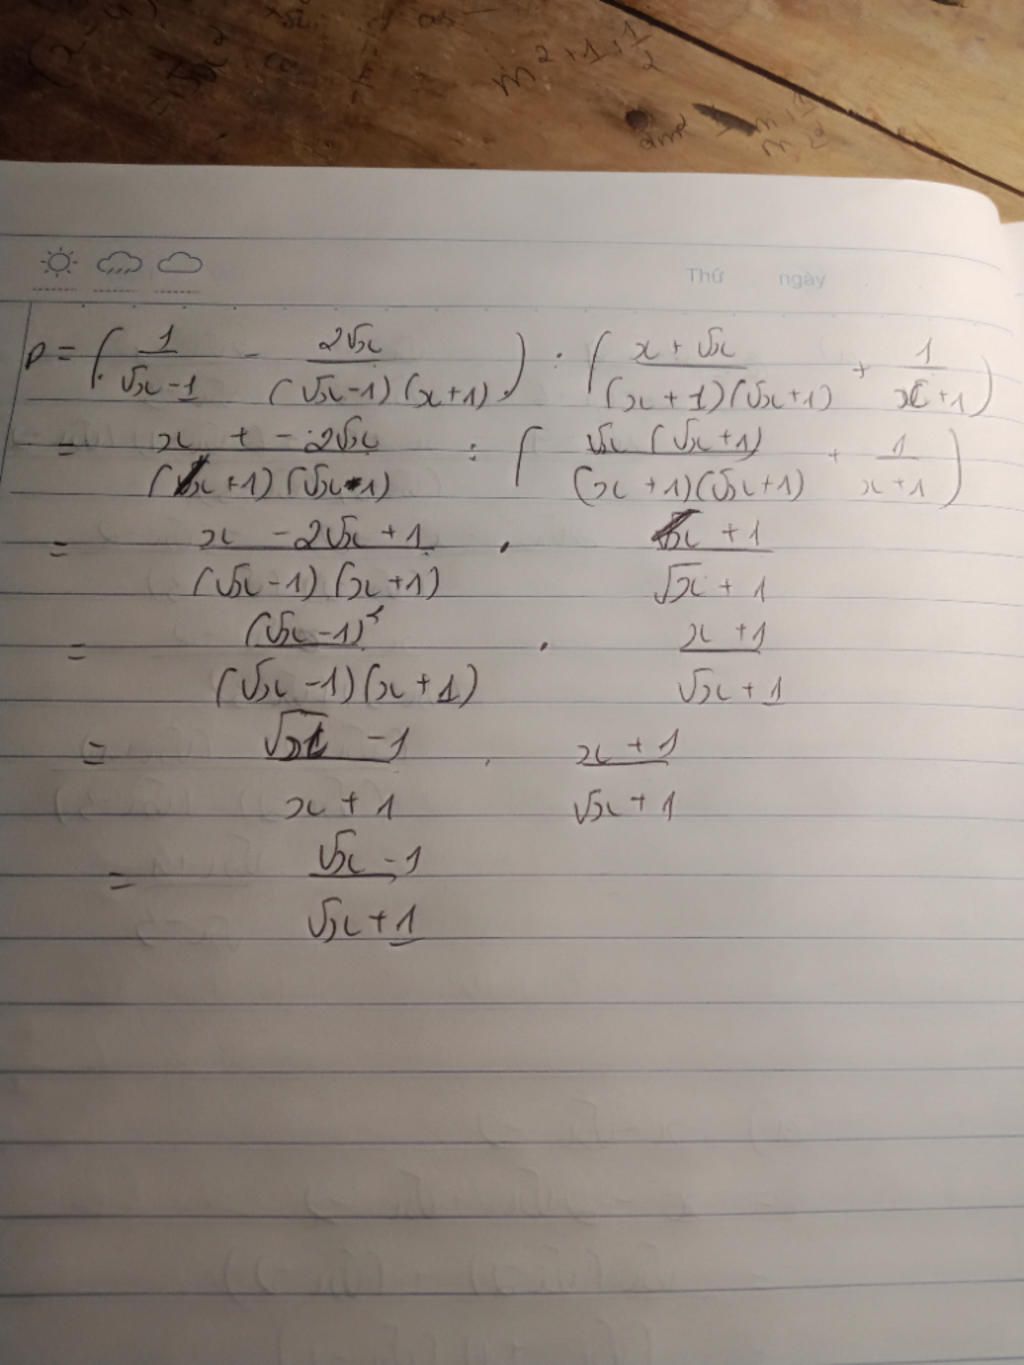 m² + 1 + 1/2
Thứ ngày
P = ( 1/(√x-1) - 2√x/((√x-1)(x+1)) ) : ( (x+√x)/((x+1)(√x+1)) + 1/(x+1) )
= (x + - 2√x)/((x+1)(√x-1)) : ( √x(√x+1)/((x+1)(√x+1)) + 1/(x+1) )
= (x - 2√x + 1)/((√x-1)(x+1)) . (x+1)/(√x+1)
= (√x-1)²/((√x-1)(x+1)) . (x+1)/(√x+1)
= (√x - 1)/(x+1) . (x+1)/(√x+1)
= (√x - 1)/(√x+1)